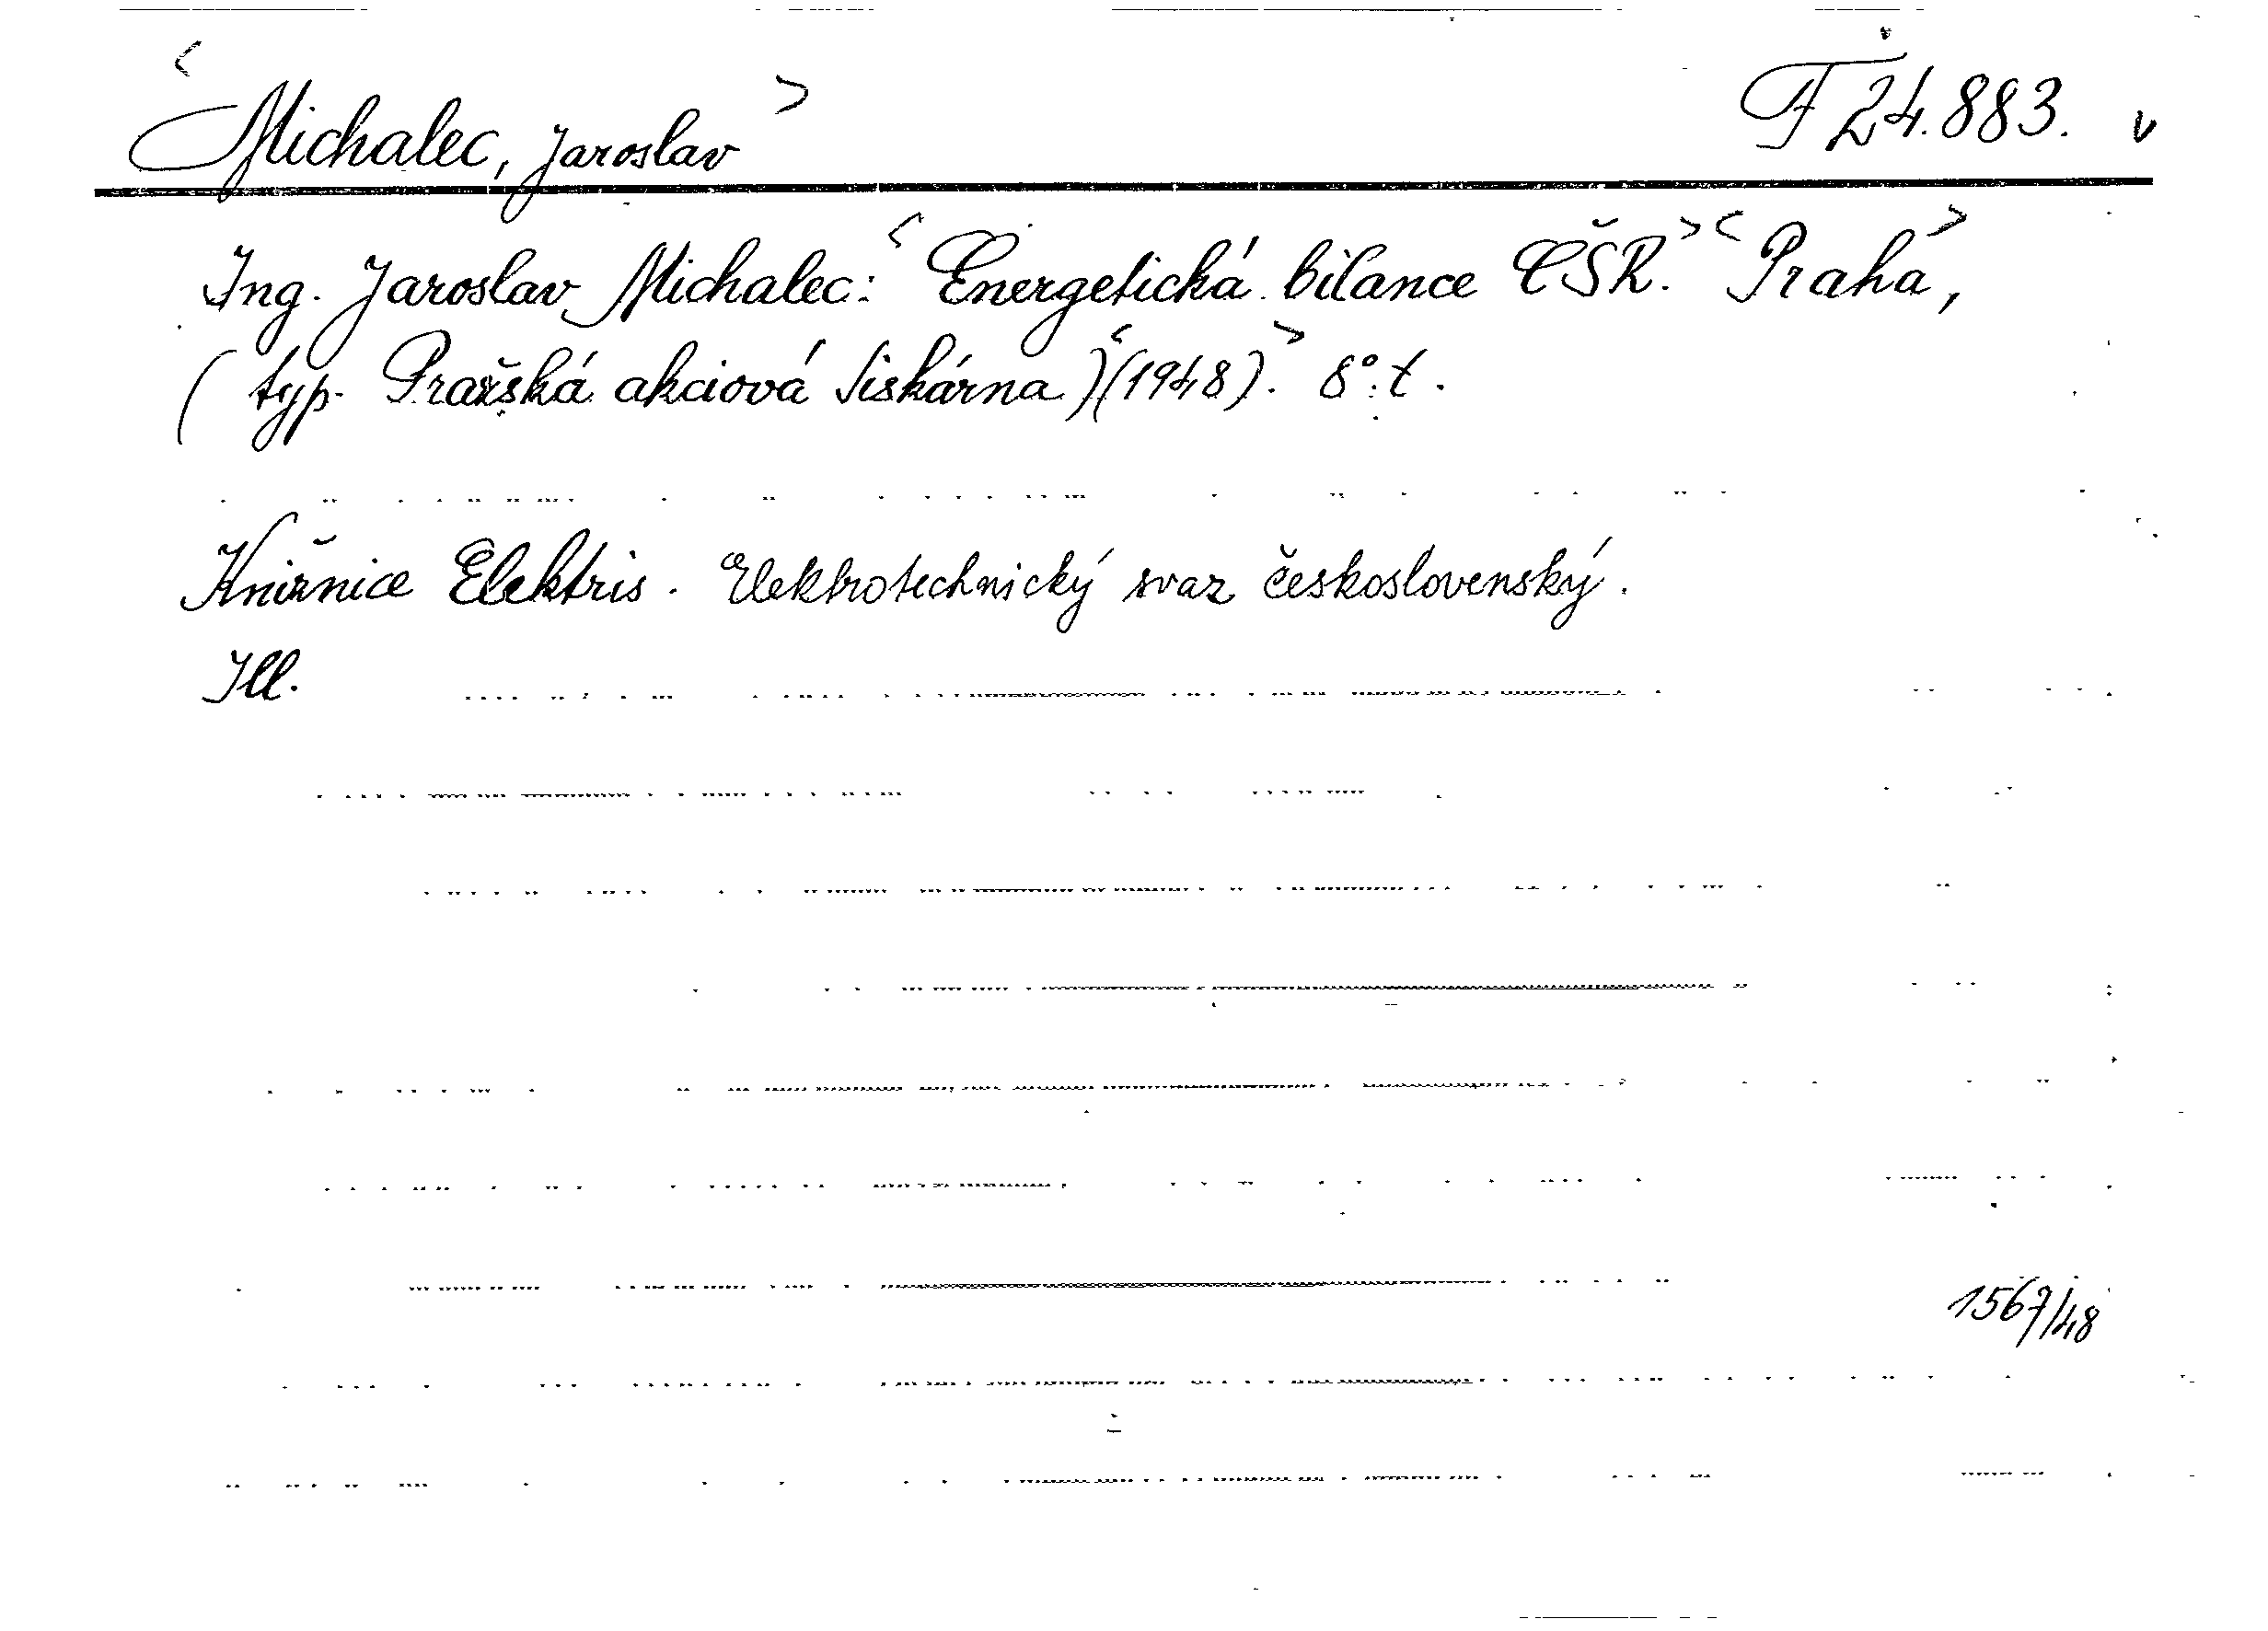 <Michalec, Jaroslav> F 24.883. v
Ing. Jaroslav Michalec: <Energetická bilance ČSR.> <Praha>,
(typ. Pražská akciová tiskárna) <(1948).> 8°. t.
Knižnice Elektris. Elektrotechnický svaz československý.
Ill.
1567/48